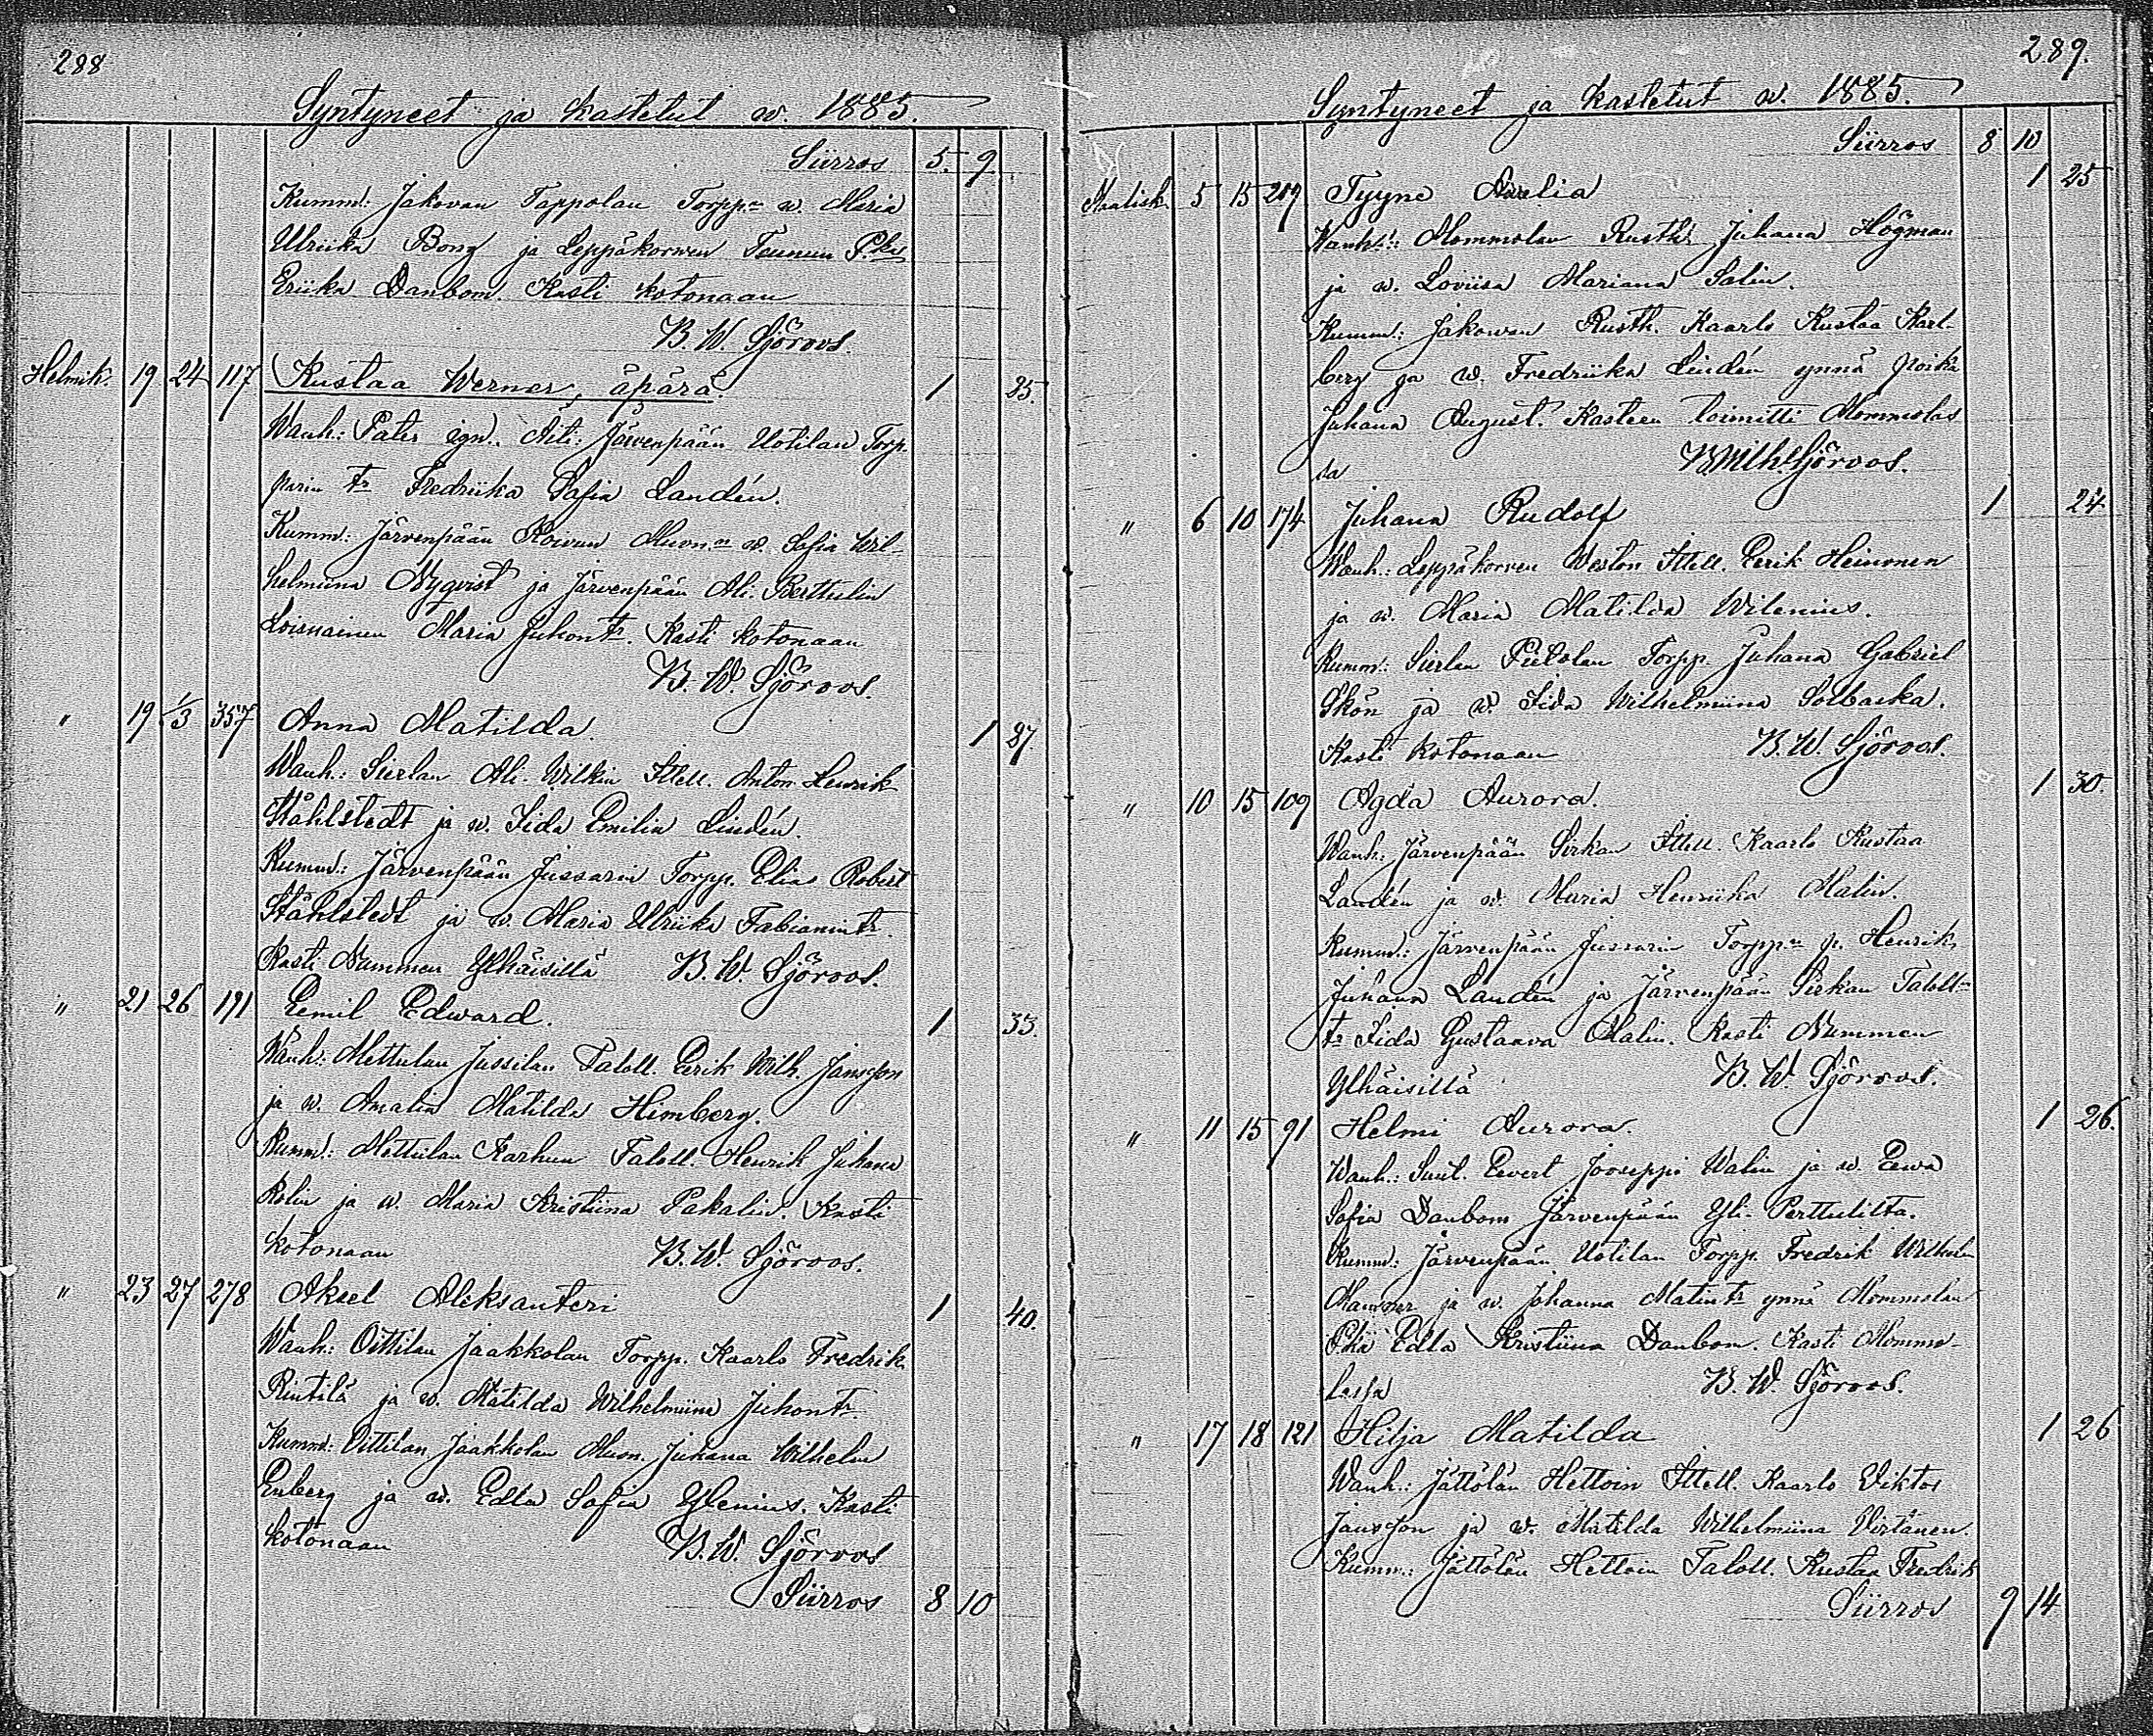 288
Syntyneet ja kastetut w. 1885.
Siirros 5. 9.
Kumm: Jakovan Tappolan Torpp.n w. Maria
Ulriika Bong ja Leppäkorwen Teunun P.ka
Eriika Danbom. Kasti kotonaan
B. W. Sjöroos.
Helmik. 19 24 117 Kustaa Werner, äpärä. 1 25.
Wanh: Pater ign. Äiti: Järvenpään Uotilan Torp
parin tr Fredriika Sofia Landén.
Kumm: Järvenpään Muon.n w. Sofia Wil-
helmiina Nyqvist ja Järvenpään Ali-Berttulin
Loisnainen Maria Juhontr. Kasti kotonaan
B. W. Sjöroos.
" 19 1/3 357 Anna Matilda. 1 27
Wanh: Sierlan Ali-Wilkin Ittell. Anton Henrik
Ståhlstedt ja w. Iida Emilia Lindén.
Kumm: Järvenpään Jussarin Torpp. Elia Robert
Ståhlstedt ja w. Maria Ulriika Fabianintr.
Kasti Nummen Ylhäisillä B. W. Sjöroos.
" 21 26 191 Eemil Edward. 1 33.
Wanh: Mettulan Jussilan Taloll. Eerik Wilh. Jansson
ja w. Amalia Matilda Himberg.
Kumm: Mettulan Karhun Taloll. Henrik Juhana
Rolin ja w. Maria Kristiina Pakalin. Kasti
kotonaan B. W. Sjöroos.
" 23 27 278 Aksel Aleksanteri 1 40.
Wanh: Oittilan Jaakkolan Torpp. Kaarlo Fredrik
Rintilä ja w. Matilda Wilhelmiina Juhontr.
Kumm: Oittilan Jaakkolan Muon. Juhana Wilhelm
Enberg ja w. Edla Sofia Ylenius. Kasti
kotonaan B. W. Sjöroos
Siirros 8 10
289.
Syntyneet ja kastetut w. 1885.
Siirros 8 10
Maalisk. 5 15 219 Tyyne Amalia 1 25
Wanh: Mommolan Rusth. Juhana Högman
ja w. Loviisa Mariana Salin.
Kumm: Jakowan Rusth. Kaarlo Kustaa Karl-
berg ja w. Fredriika Lindén ynnä poika
Juhana August. Kasteen toimitti Mommolas
sa B Wilh. Sjöroos.
" 6 10 174 Juhana Rudolf 1 24
Wanh: Leppäkorven Weston Ittell. Eerik Heinonen
ja w. Maria Matilda Wilenius.
Kumm: Sierlan Pietolan Torpp. Juhana Gabriel
Skön ja w. Iida Wilhelmiina Solbacka.
Kasti kotonaan B. W. Sjöroos.
" 10 15 109 Agda Aurora. 1 30.
Wanh: Järvenpään Sirkan Ittell. Kaarlo Kustaa
Landén ja w. Maria Henriika Malin.
Kumm: Järvenpään Jussarin Torpp.n p. Henrik
Juhana Landén ja Järvenpään Sirkan Taloll.n
tr Iida Gustaava Malin. Kasti Nummen
Ylhäisillä B. W. Sjöroos.
" 11 15 91 Helmi Aurora. 1 26.
Wanh: Suut. Evert Jooseppi Walin ja w. Eewa
Sofia Danbom Järvenpään Yli-Perttulilta.
Kumm: Järvenpään Uotilan Torpp. Fredrik Wilhelm
ja w. Johanna Matintr ynnä Mommolan
P.ka Edla Kristiina Danbom. Kasti Mommo-
lassa B. W. Sjöroos.
" 17 18 121 Hilja Matilda 1 26
Wanh: Jättölän Hettoin Ittell. Kaarlo Viktor
Jansson ja w. Matilda Wilhelmiina Virtanen.
Kumm: Jättölän Hettoin Taloll. Kustaa Fredrik
Siirros 9 14